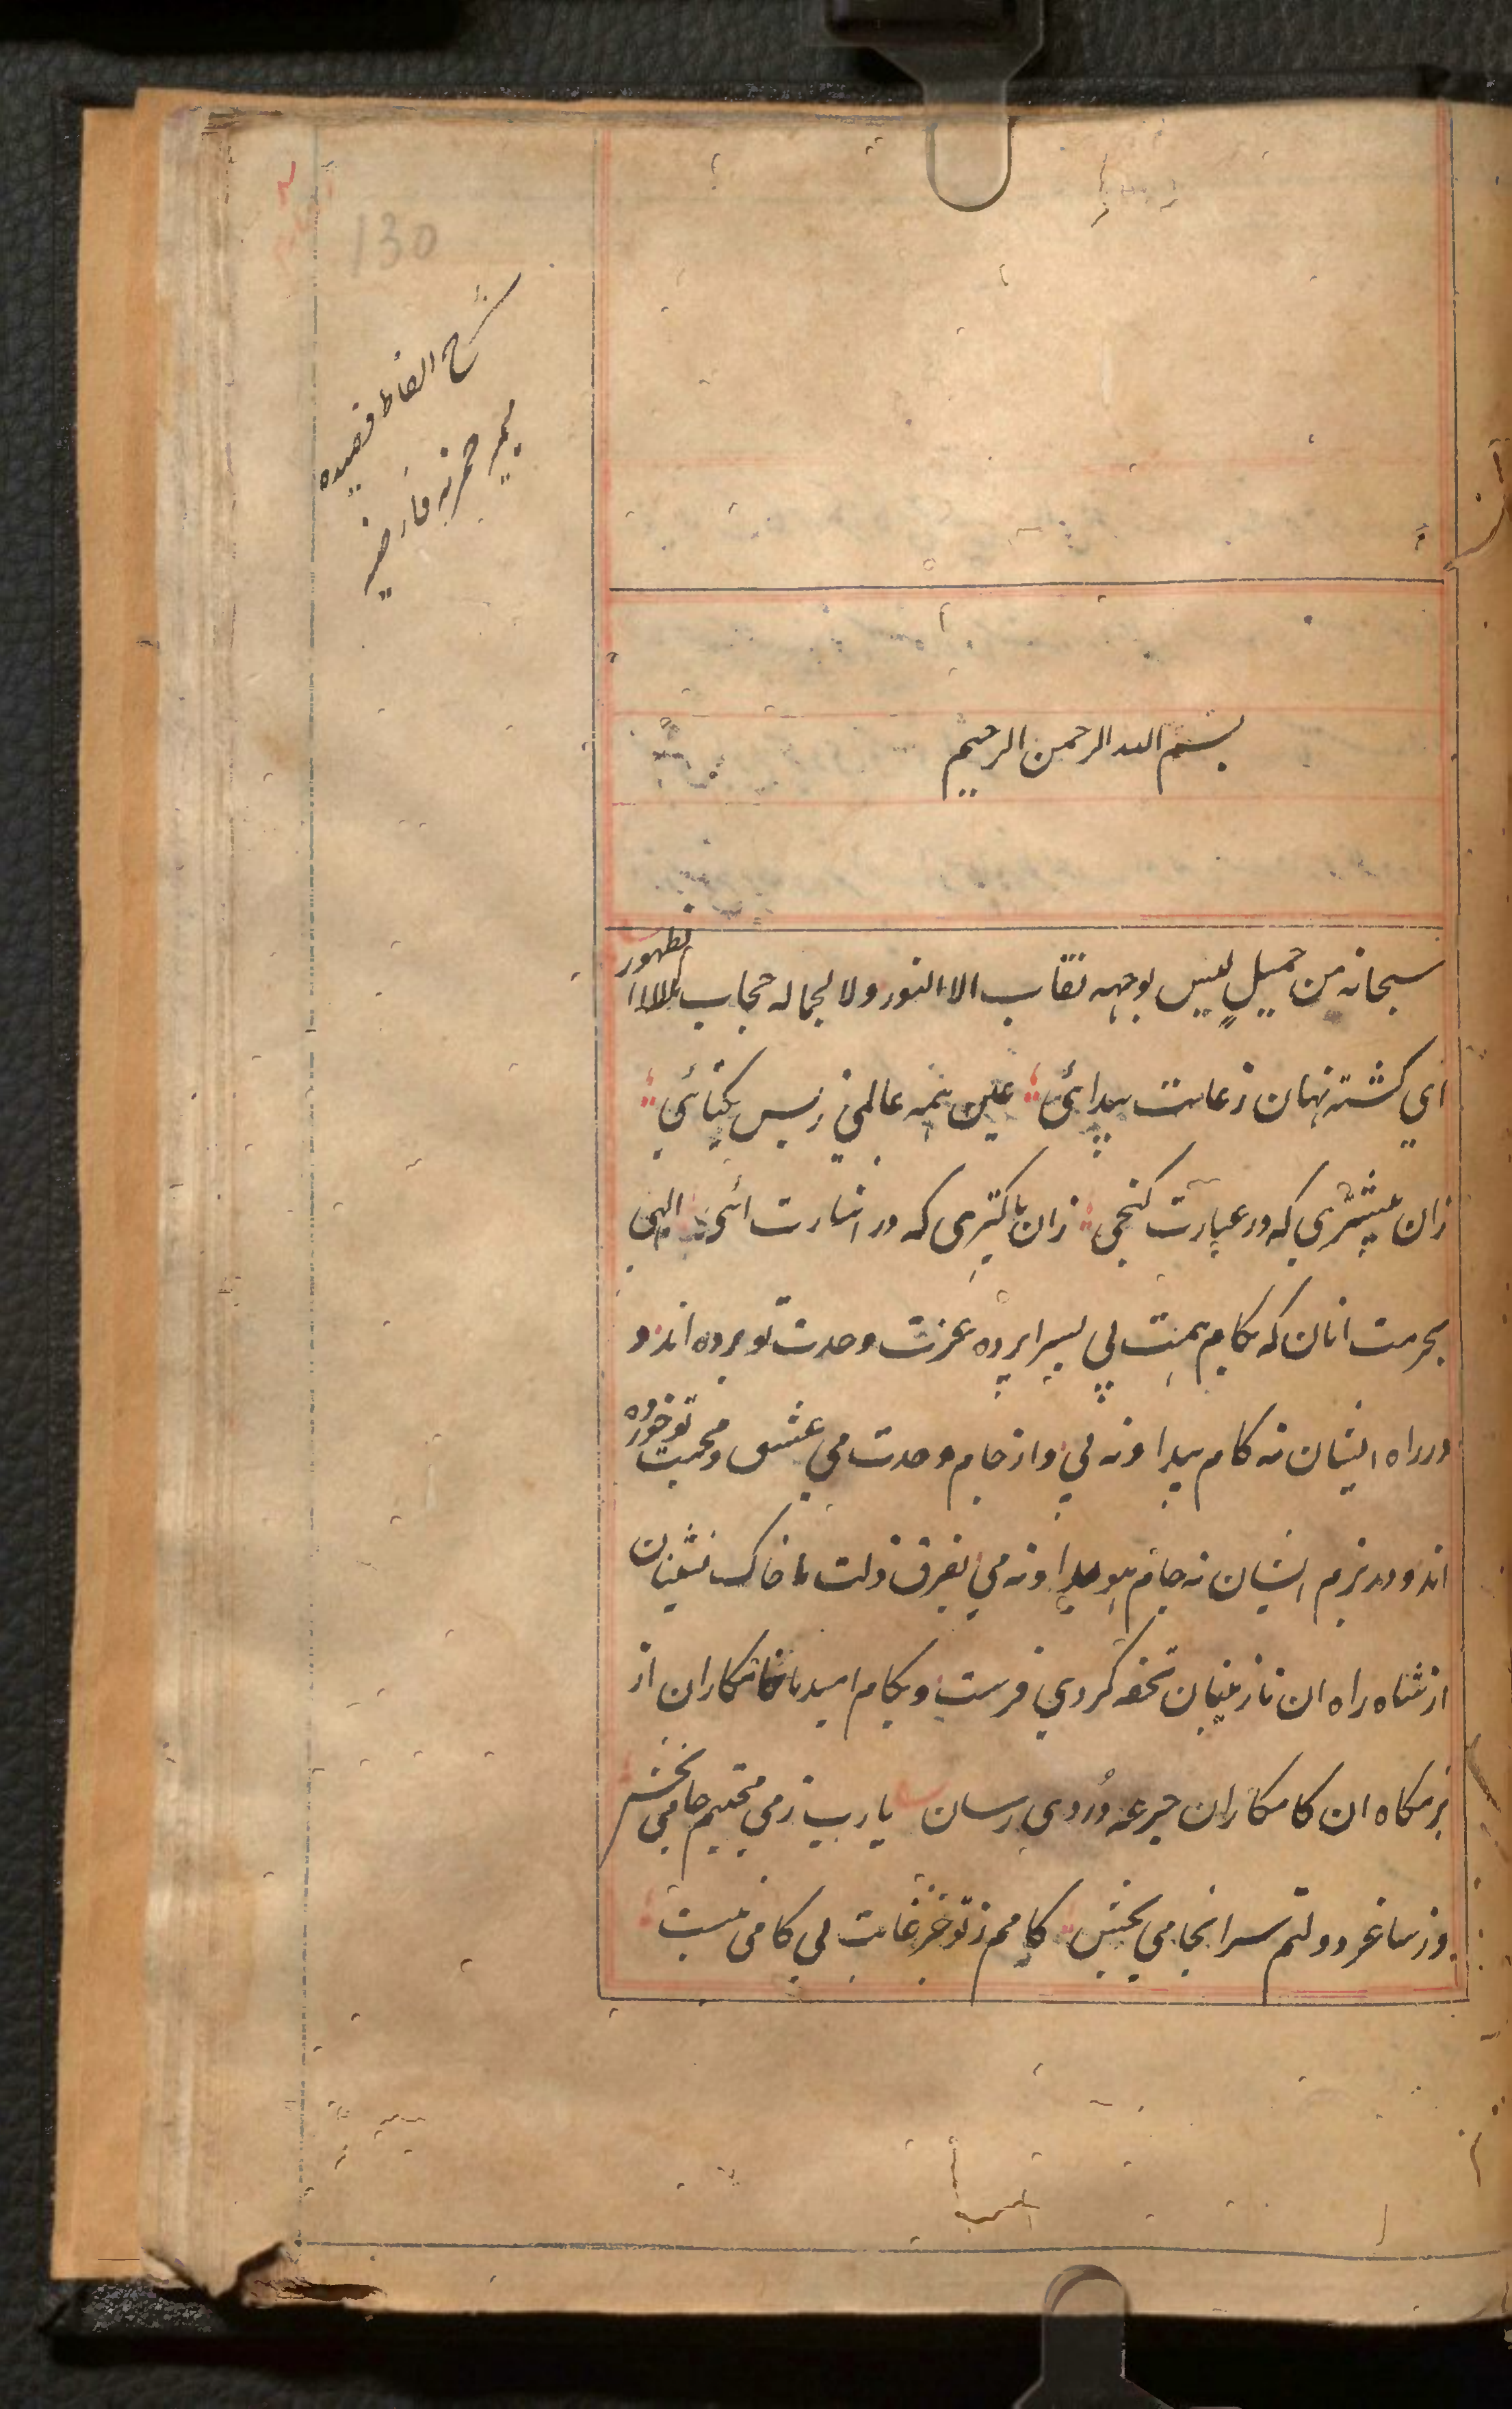 130
شرح الفاظ قصیده
میمیه خمریه فارضیه
بسم الله الرحمن الرحیم
سبحانه من جمیلٍ لیس لوجهه نقاب الا النور ولا لجماله حجاب الا الظهور
ای کشته نهان ز غایت پیدائی عین همه عالمی ز بس یکتائی
زان بیشتری که در عبارت کنجی زان پاکتری که در اشارت ائی الهی
بحرمت انان که بکام همت پی بسراپرده عزت وحدت تو برده اند و
در راه ایشان نه کام پیدا و نه پی و از جام وحدت می عشق و محبت تو خورده
اند و در بزم ایشان نه جام هویدا و نه می بفرق ذلت ما خاک نشینان
از شاه راه ان نازنینان تحفه کردی فرست و بکام امید ما ناکامکاران از
بزمکاه ان کامکاران جرعه دُردی رسان یا رب ز می محبتم جامی بخش
وز ساغر دولتم سرانجامی بخش کامم ز تو جز غایت بی کامی نیست